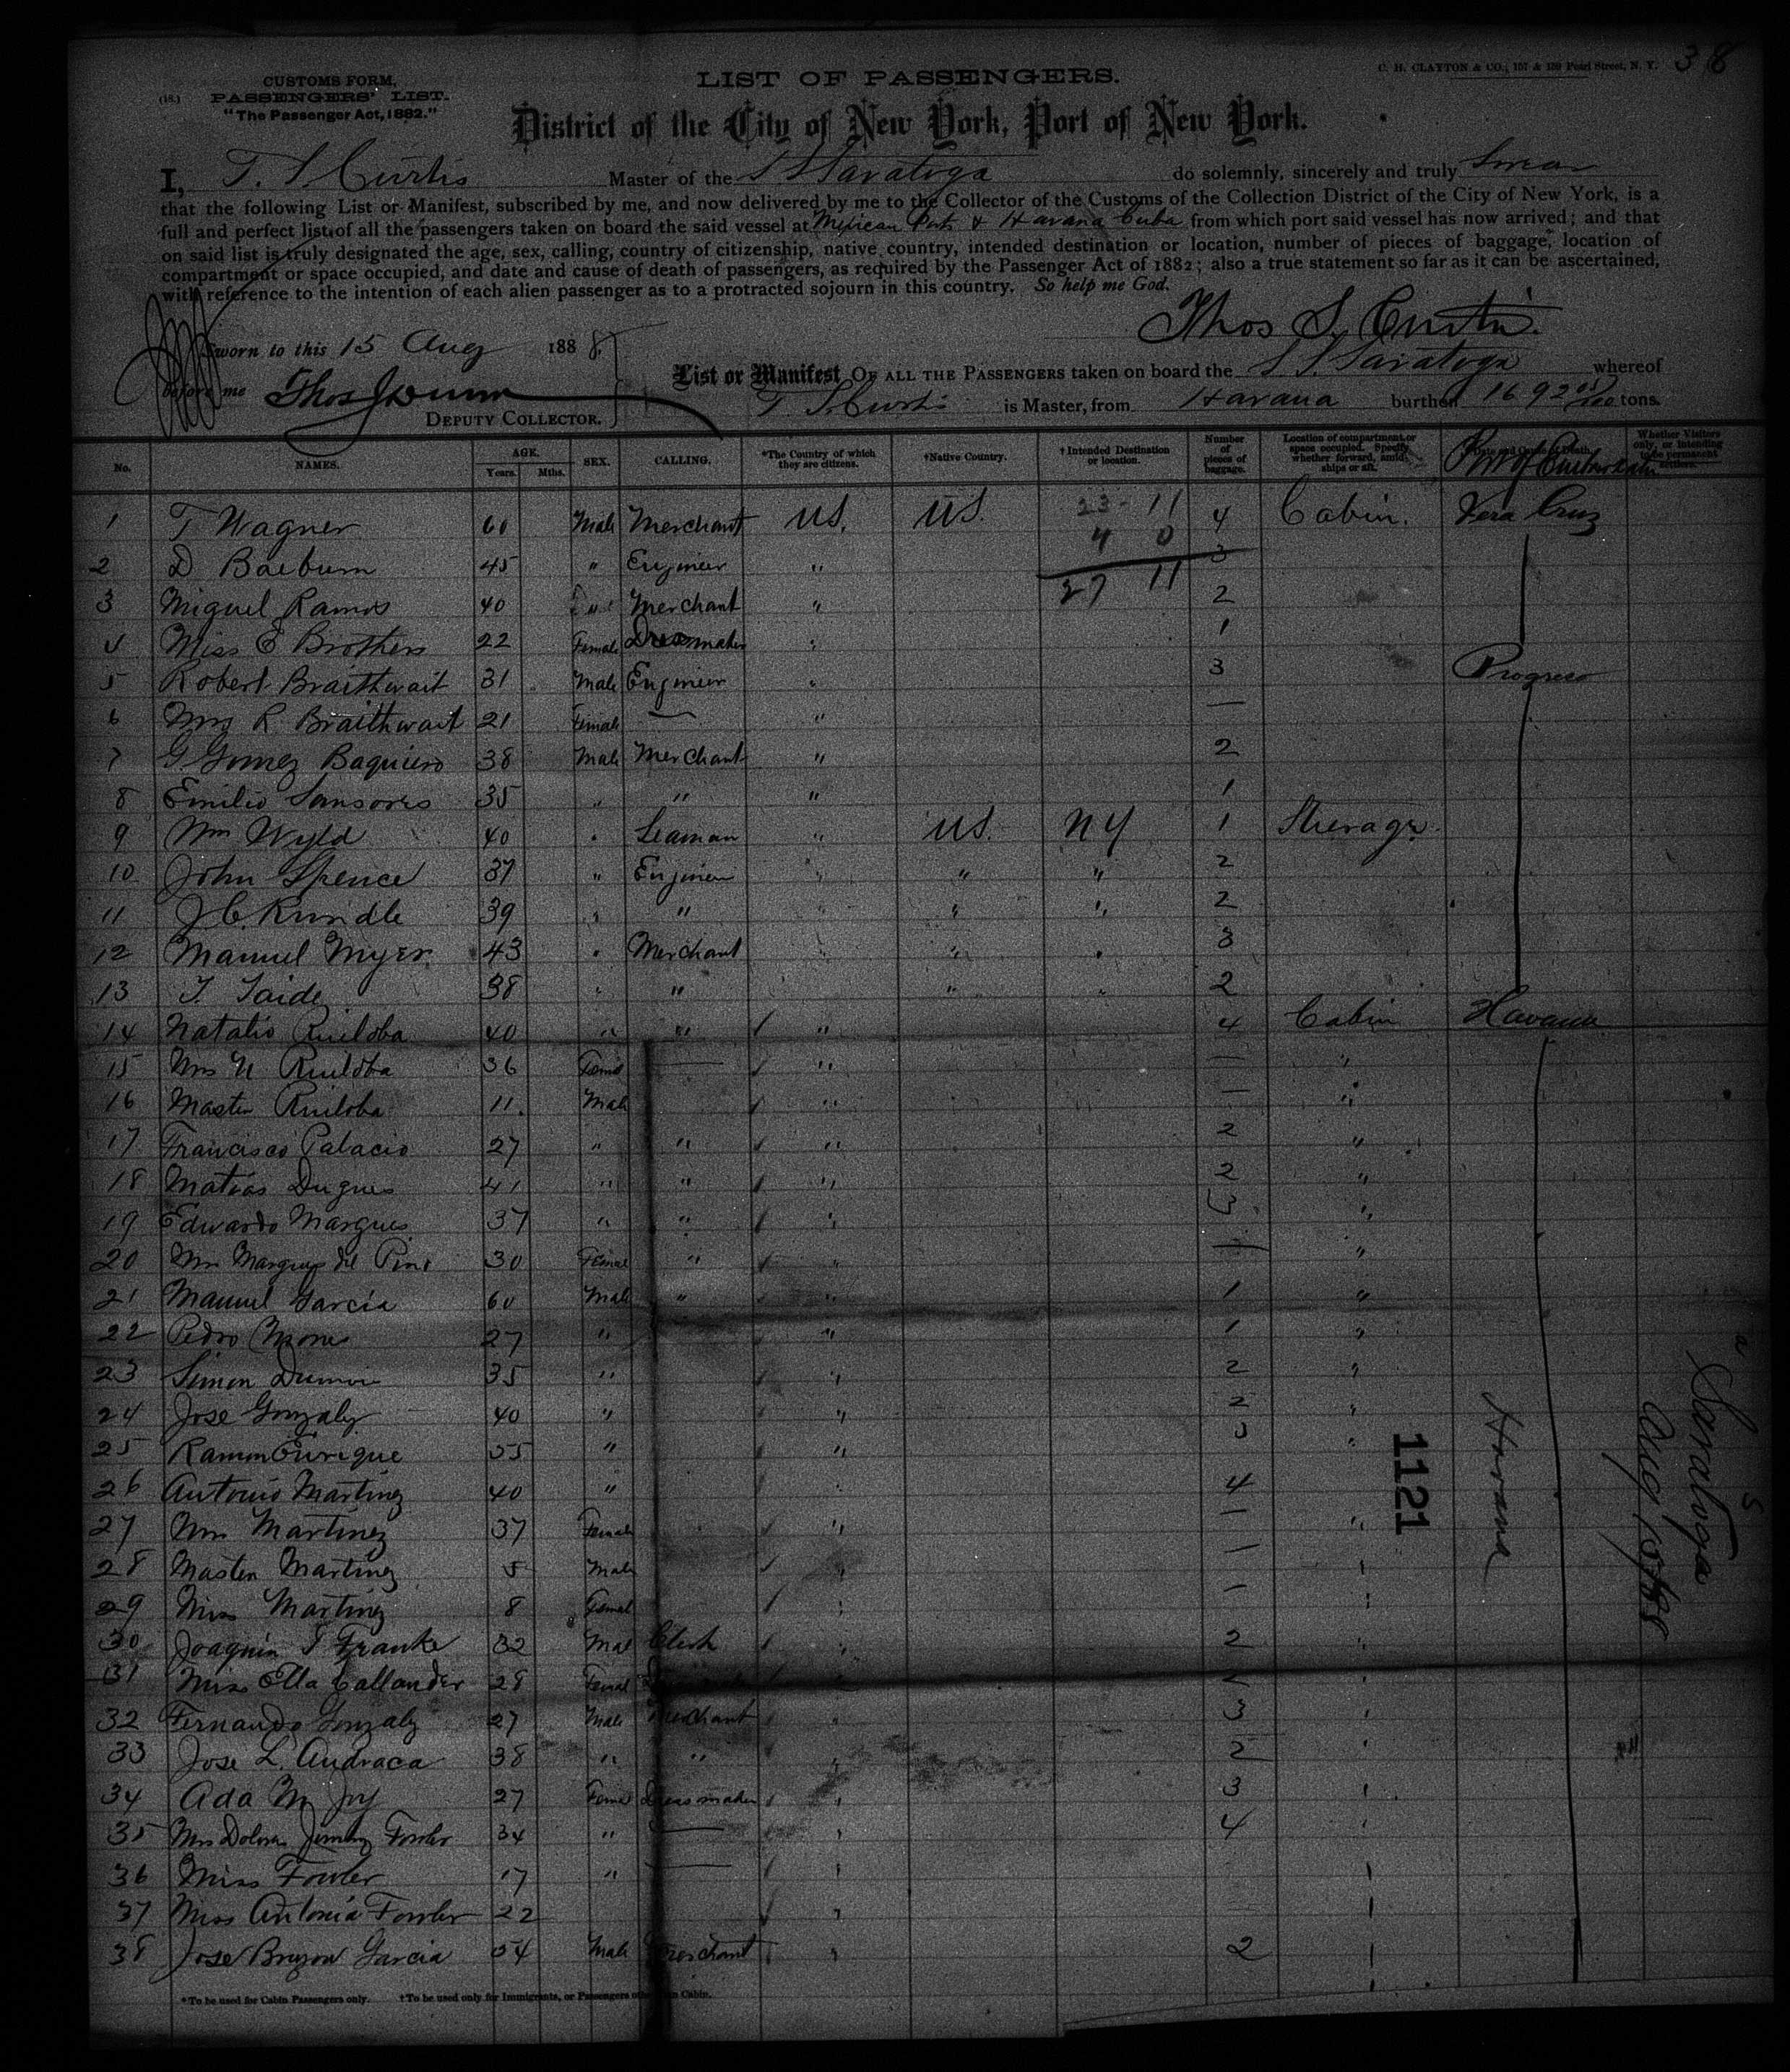 38
C. H. CLAYTON & CO., 157 & 159 Pearl Street, N. Y.
(18.)
CUSTOMS FORM,
PASSENGERS' LIST.
"The Passenger Act, 1882."
LIST OF PASSENGERS.
District of the City of New York, Port of New York.
I, T. S. Curtis Master of the S S Saratoga do solemnly, sincerely and truly Swear
that the following List or Manifest, subscribed by me, and now delivered by me to the Collector of the Customs of the Collection District of the City of New York, is a
full and perfect list of all the passengers taken on board the said vessel at Mexican Ports & Havana Cuba from which port said vessel has now arrived; and that
on said list is truly designated the age, sex, calling, country of citizenship, native country, intended destination or location, number of pieces of baggage, location of
compartment or space occupied, and date and cause of death of passengers, as required by the Passenger Act of 1882; also a true statement so far as it can be ascertained,
with reference to the intention of each alien passenger as to a protracted sojourn in this country. So help me God.
Thos S. Curtis
Sworn to this 15 Aug 1888
before me Thos J Dunn
DEPUTY COLLECTOR.
List or Manifest OF ALL THE PASSENGERS taken on board the S. S. Saratoga whereof
T. S. Curtis is Master, from Havana burthen 1692 tons.
No. NAMES. AGE. Years. Mths. SEX. CALLING. *The Country of which they are citizens. †Native Country. †Intended Destination or location. Number of pieces of baggage. Location of compartment or space occupied. Specify whether forward, amidships or aft. Date and Cause of Death. Port of Embarkation Whether Visitors only, or intending to be permanent settlers.
23 - 11
4 0
27 11
1 T Wagner 60 Male Merchant US. US. 4 Cabin. Vera Cruz
2 D Baeburn 45 " Engineer " 3
3 Miguel Ramos 40 " Merchant " 2
4 Miss E Brothers 22 Female Dressmaker " 1
5 Robert Braithwait 31 Male Engineer " 3 Progreso
6 Mrs R Braithwait 21 Female — " —
7 G. Gomez Baquiero 38 Male Merchant " 2
8 Emilio Sansores 35 " " " 1
9 Wm Wyld 40 " Seaman " US. NY 1 Steerage
10 John Spence 37 " Engineer " " " 2
11 J. C. Rundle 39 " " " " " 2
12 Manuel Myer 43 " Merchant " " " 3
13 T. Taide 38 " " " " 2
14 Natalio Ruiloba 40 " " " 4 Cabin Havana
15 Mrs N Ruiloba 36 Femal — " — "
16 Master Ruiloba 11 Male " — "
17 Francisco Palacio 27 " " " 2 "
18 Matias Dugues 41 " " " 2 "
19 Edwardo Marques 37 " " " 3 "
20 Mrs Marques del Pino 30 Female " " — "
21 Manuel Garcia 60 Male " " 1 "
22 Pedro Mone 27 " " 1 "
23 Simon 35 " " 2 "
24 Jose Gonzalez 40 " " 2 "
25 Ramon Enrique 35 " " 3 "
26 Antonio Martinez 40 " " 4
27 Mrs Martinez 37 Female " — "
28 Master Martinez 5 Male " — "
29 Miss Martinez 8 Femal " — "
30 Joaquin T Franke 32 Male Clerk " 2 "
31 Miss Ella Callander 28 Femal " 2 "
32 Fernando Gonzalez 27 Male Merchant " 3 "
33 Jose L. Andraca 38 " " " 2 "
34 Ada M Joy 27 Femal Dressmaker " 3 "
35 Mrs Dolores Jimenez Fowler 34 " — " 4 "
36 Miss Fowler 17 " — " "
37 Miss Antonia Fowler 22 " — "
38 Jose Bruzon Garcia 54 Male Merchant " 2 "
*To be used for Cabin Passengers only. †To be used only for Immigrants, or Passengers other than Cabin.
1121
Havana
SS Saratoga
Aug 15/88